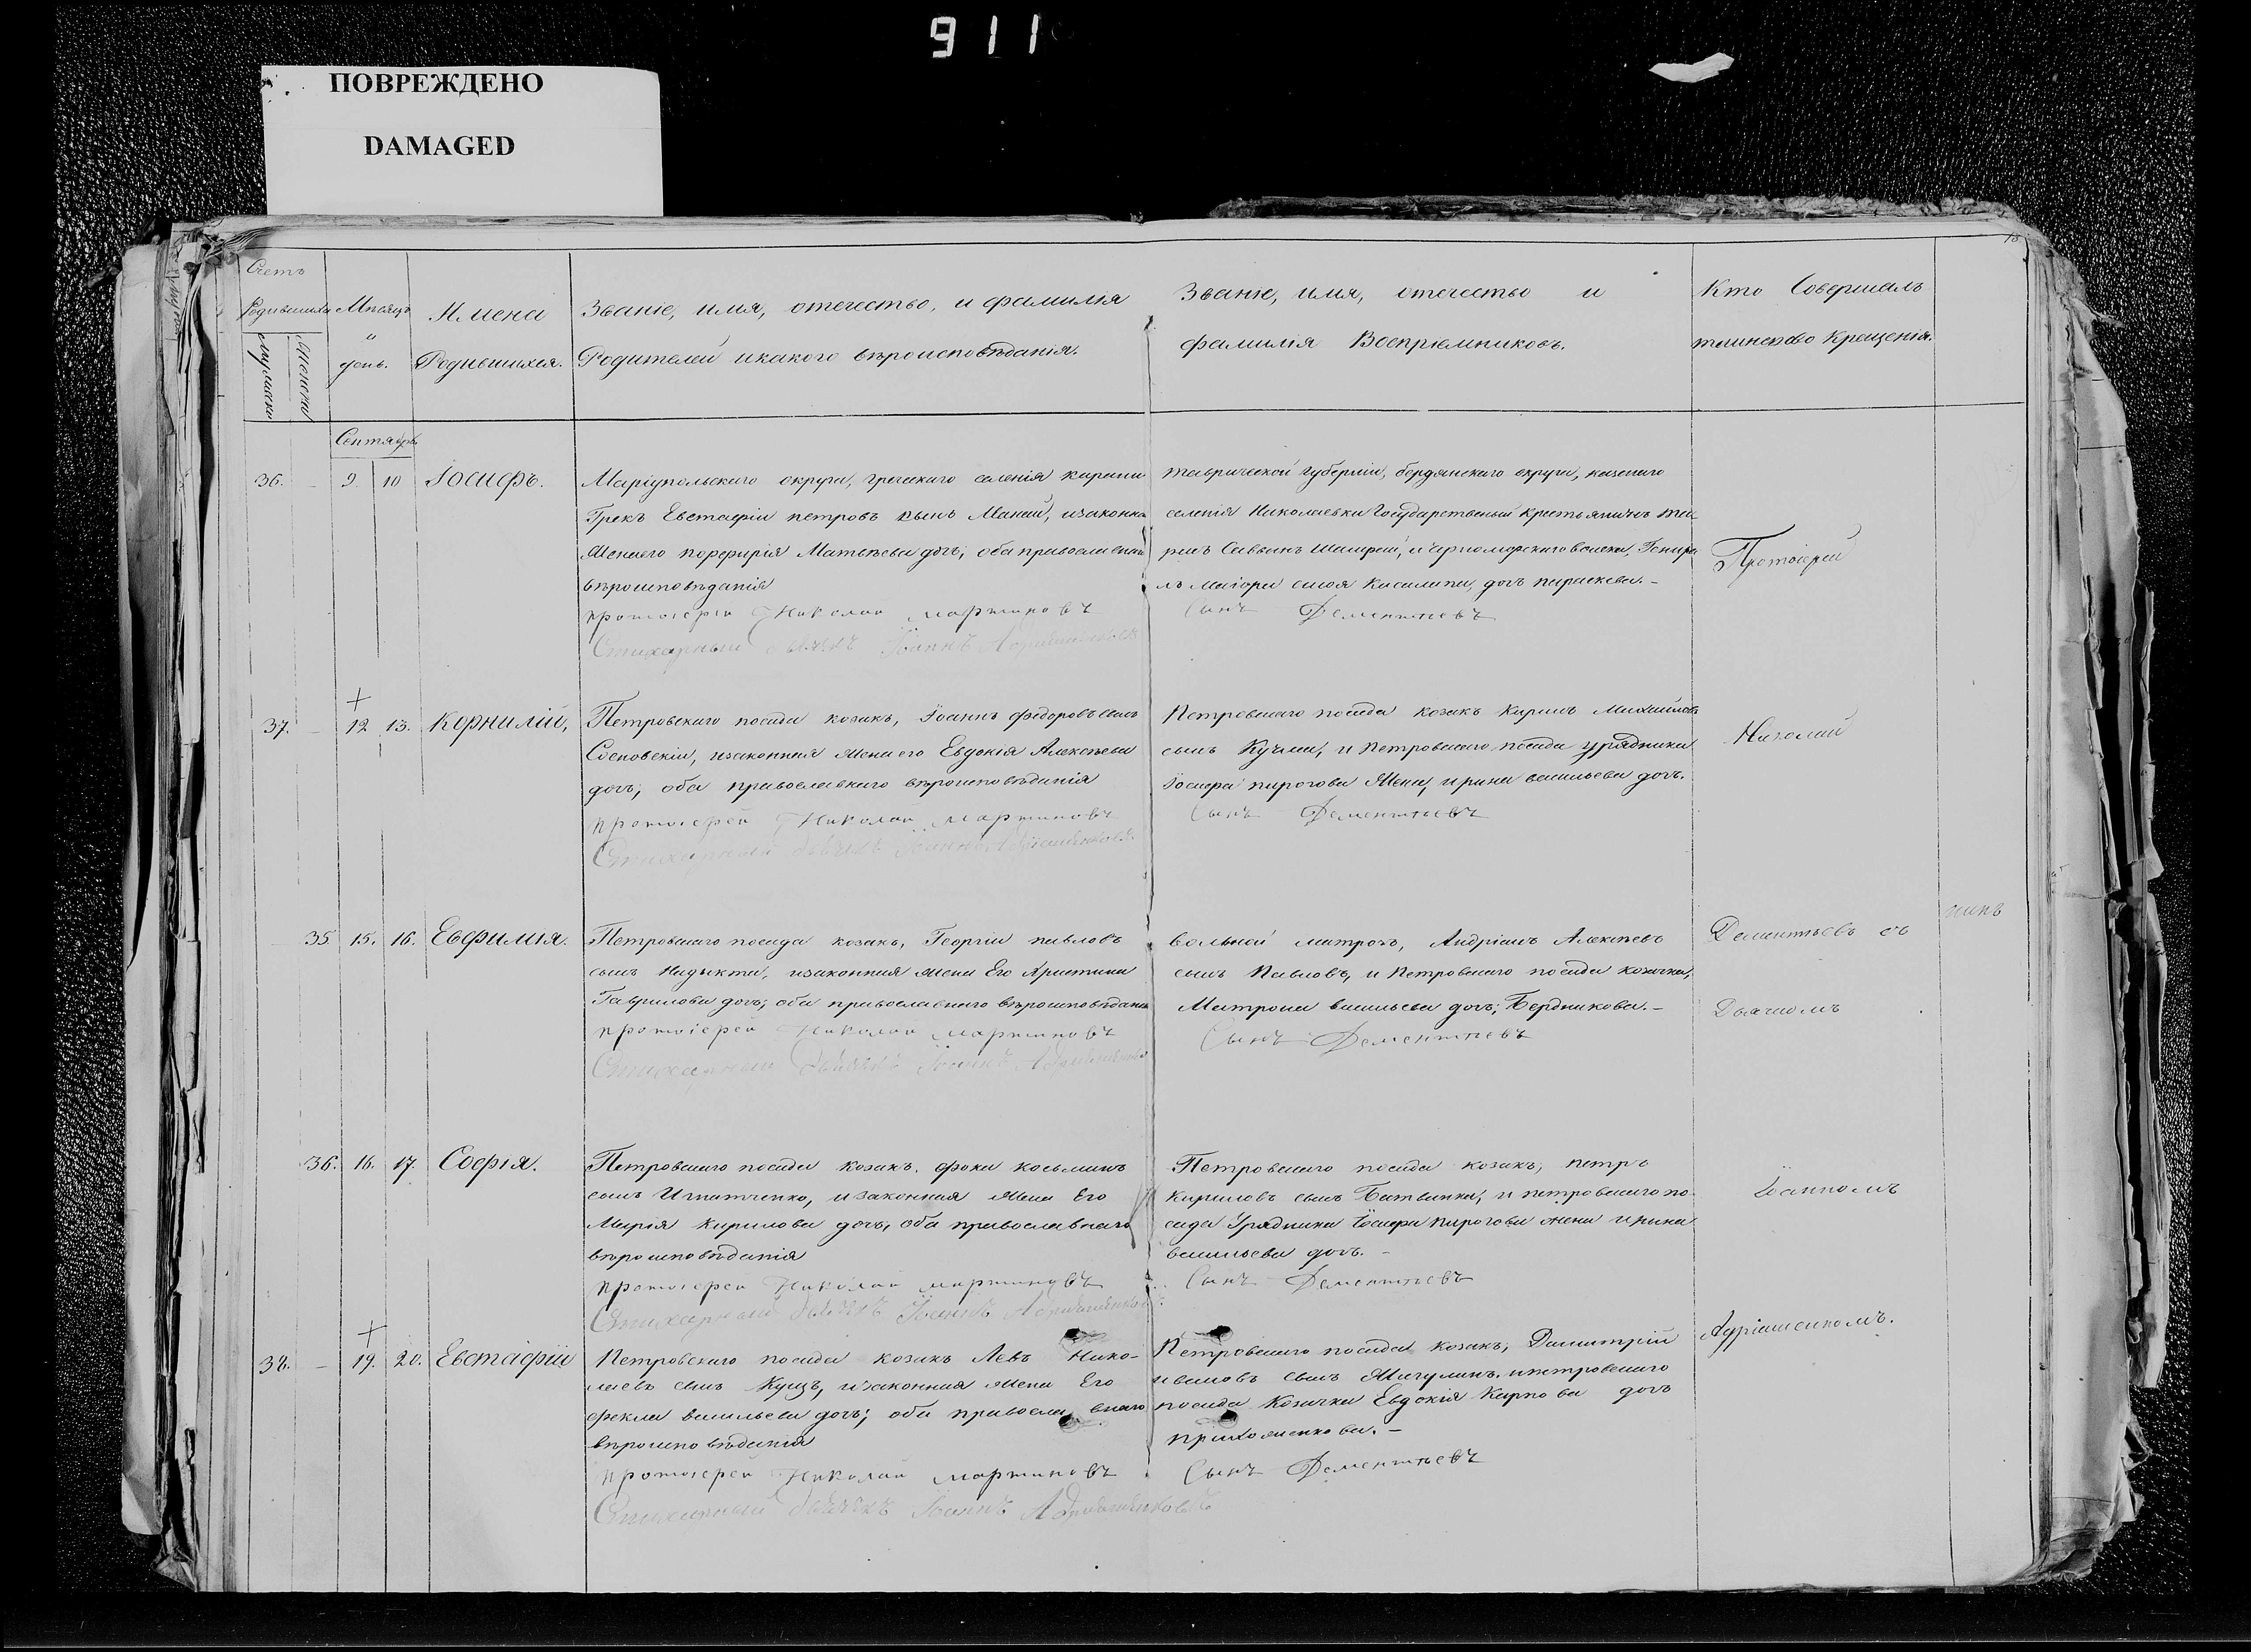 911
ПОВРЕЖДЕНО
DAMAGED
Счетъ
Родившихся
Мужеска
Женска
Мѣсяцъ
и
день.
Имена
Родившихся.
Званіе, имя, отечество, и фамилія
Родителей икакого вѣроисповѣданія.
Званіе, имя, отечество и
фамилія Воспріемниковъ.
Кто Совершалъ
таинство Крещенія.
Сентябрь
36. 9 10 Іосифъ.
Маріупольскаго округа, греческаго селенія карани
Грекъ Евстафіи петровъ сынъ изаконна
Жена его порфирія Матвѣева дочь; оба православнаго
вѣроисповѣданія
протоіереи Николаи мартиновъ
Стихарный Іоаннъ
таврической губерніи, бердянскаго округа, казенаго
селенія Николаевки Государственый крестьянинъ
и черноморскаго воиска, Генира
лъ маіора дочь параскева.-
Сынъ Дементьевъ
Протоіерей
37. 12 13. Корнилій,
Петровскаго посада козакъ, Іоаннъ федоровъ сынъ
Сосновскіи, изаконная Жена его Евдокія Алексѣева
дочь, оба православнаго вѣроисповѣданія
протоіереи Николаи мартиновъ
Стихарный Іоаннъ
Петровскаго посада козакъ Кирилъ Михаиловъ
сынъ Кучма, и Петровскаго посада урядника
Іосифа пирогова Жена, ирина васильева дочь.
Сынъ Дементьевъ
Николай
35 15. 16. Евфимія.
Петровскаго посада козакъ, Георгіи павловъ
сынъ изаконная жена Его Христина
Гаврилова дочь, оба православнаго вѣроисповѣданія
протоіереи Николаи мартиновъ
Стихарный Іоаннъ
вольной матрозъ, Андріанъ Алексѣевъ
сынъ Павловъ, и Петровскаго посада козачка,
Матрона васильева дочь; Бердникова.-
Сынъ Дементьевъ
Дементьевъ съ
Дьячкомъ
36. 16. 17. Софія.
Петровскаго посада козакъ. фока косьминъ
сынъ Игнатченко, изаконная жена Его
Марія кирилова дочь, оба православнаго
вѣроисповѣданія
протоіереи Николаи мартиновъ
Стихарный Іоаннъ
Петровскаго посада козакъ, петръ
кириловъ сынъ и петровскаго по-
сада Урядника Іосифа пирогова жена ирина
васильева дочь.-
Сынъ Дементьевъ
Іоанномъ
38. 19. 20. Евстафій
Петровскаго посада козакъ Левъ Нико-
лаевъ сынъ Куцъ, изаконная жена Его
фекла васильева дочь; оба православнаго
вѣроисповѣданія
протоіереи Николай мартиновъ
Стихарный Іоаннъ
Петровскаго посада козакъ, Димитрій
ивановъ сынъ Мигулинъ. ипетровскаго
посада козачка Евдокія Карпова дочь
Сынъ Дементьевъ